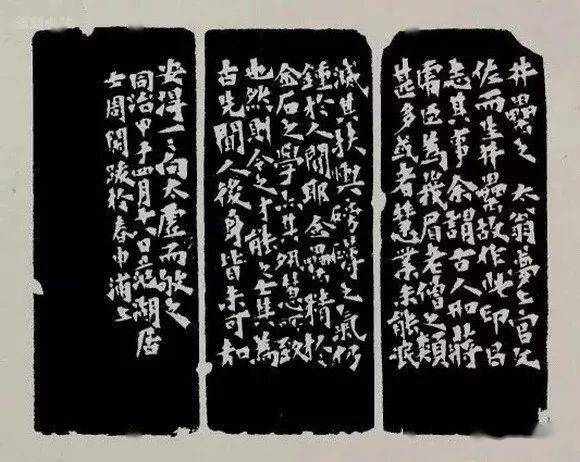 井罍之太翁夢之官父
佐而生井罍故作此印呂
志其事余謂古人如蔣
虎臣為峩眉老僧之類
甚多或者慧業未能泯
滅其扶輿磅礴之氣仍
鍾於人間耶井罍精於
金石之學六其夙慧所致
也然則今之才能之士其為
古先聞人後身皆未可知
安得一一向太虛而敂之
同治甲子四月六日范湖居
士周閑跋於春申浦上